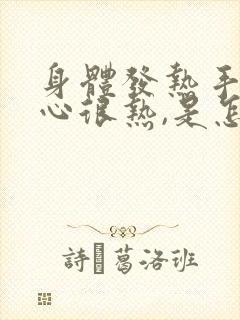 身體發熱手
心很熱,是怎
詩 葛洛班